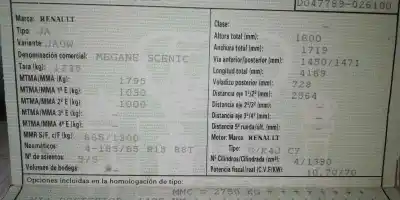 D047799-026100
Marca: RENAULT
Tipo: JA
Variante: JA0W
Denominación comercial: MEGANE SCENIC
Tara (kg): 1295
MTMA/MMA (Kg): 1795
MTMA/MMA 1º E (kg): 1030
MTMA/MMA 2º E (kg): 1000
MTMA/MMA 3º E (kg): -
MTMA/MMA 4º E (kg): -
MMR S/F, c/F (kg): 665/1300
Neumáticos: 4-185/65 R15 88T
Nº de asientos: 5/5
Volumen de bodega: -
Clase: -
Altura total (mm): 1600
Anchura total (mm): 1719
Vía anterior/posterior (mm): 1450/1471
Longitud total (mm): 4169
Voladizo posterior (mm): 728
Distancia eje 1º/2º (mm): 2564
Distancia eje 2º/3º (mm): -
Distancia eje 3º/4º (mm): -
Distancia 5ª rueda/últ. (mm): -
Motor: Marca RENAULT
Tipo: G/K4J C7
Nº Cilindros/Cilindrada (cm³): 4/1390
Potencia fiscal/real (C.V.F/KW): 10,20/70
Opciones incluidas en la homologación de tipo:
MMC = 2750 KG